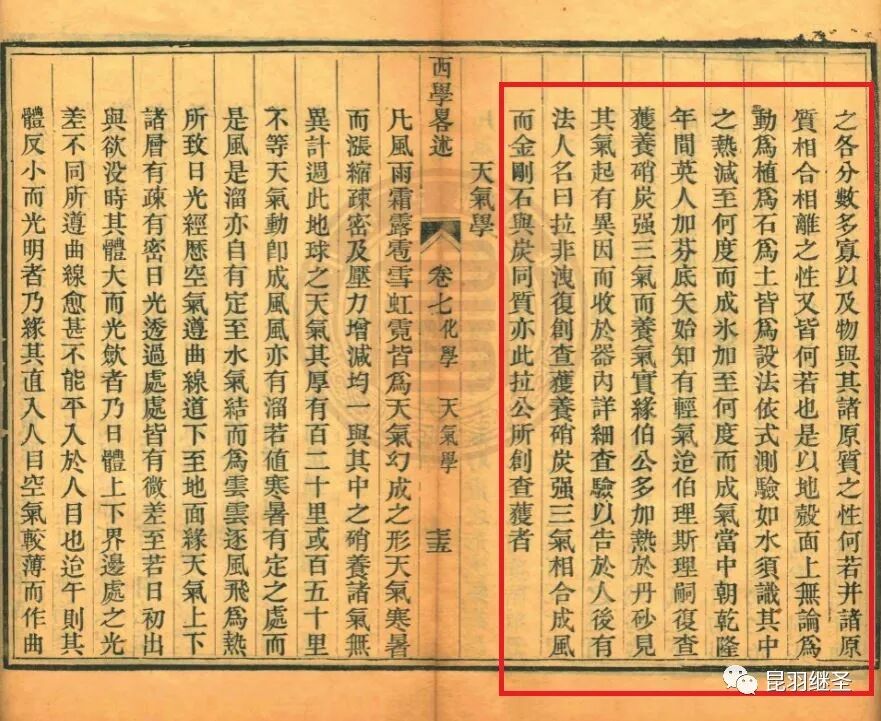 之各分數多寡以及物與其諸原質之性何若并諸原
質相合相離之性又皆何若也是以地殼面上無論爲
動爲植爲石爲土皆爲設法依式測驗如水須識其中
之熱減至何度而成氷加至何度而成氣當中朝乾隆
年間英人加芬底矢始知有輕氣迨伯理斯理嗣復查
獲養硝炭强三氣而養氣實緣伯公多加熱於丹砂見
其氣起有異因而收於器內詳細查驗以告於人後有
法人名曰拉非洩復創查獲養硝炭强三氣相合成風
而金剛石與炭同質亦此拉公所創查獲者
天氣學
西學畧述
卷七 化學 天氣學
凡風雨霜露雹雪虹霓皆爲天氣幻成之形天氣寒暑
而漲縮疎密及壓力增減均一與其中之硝養諸氣無
異計週此地球之天氣其厚有百二十里或百五十里
不等天氣動卽成風風亦有溜若値寒暑有定之處而
是風是溜亦自有定至水氣結而爲雲雲逐風飛爲熱
所致日光經歷空氣遵曲線道下至地面緣天氣上下
諸層有疎有密日光透過處處皆有微差至若日初出
與欲没時其體大而光歛者乃日體上下界邊處之光
差不同所遵曲線愈甚不能平入於人目也迨午則其
體反小而光明者乃緣其直入人目空氣較薄而作曲
昆羽继圣